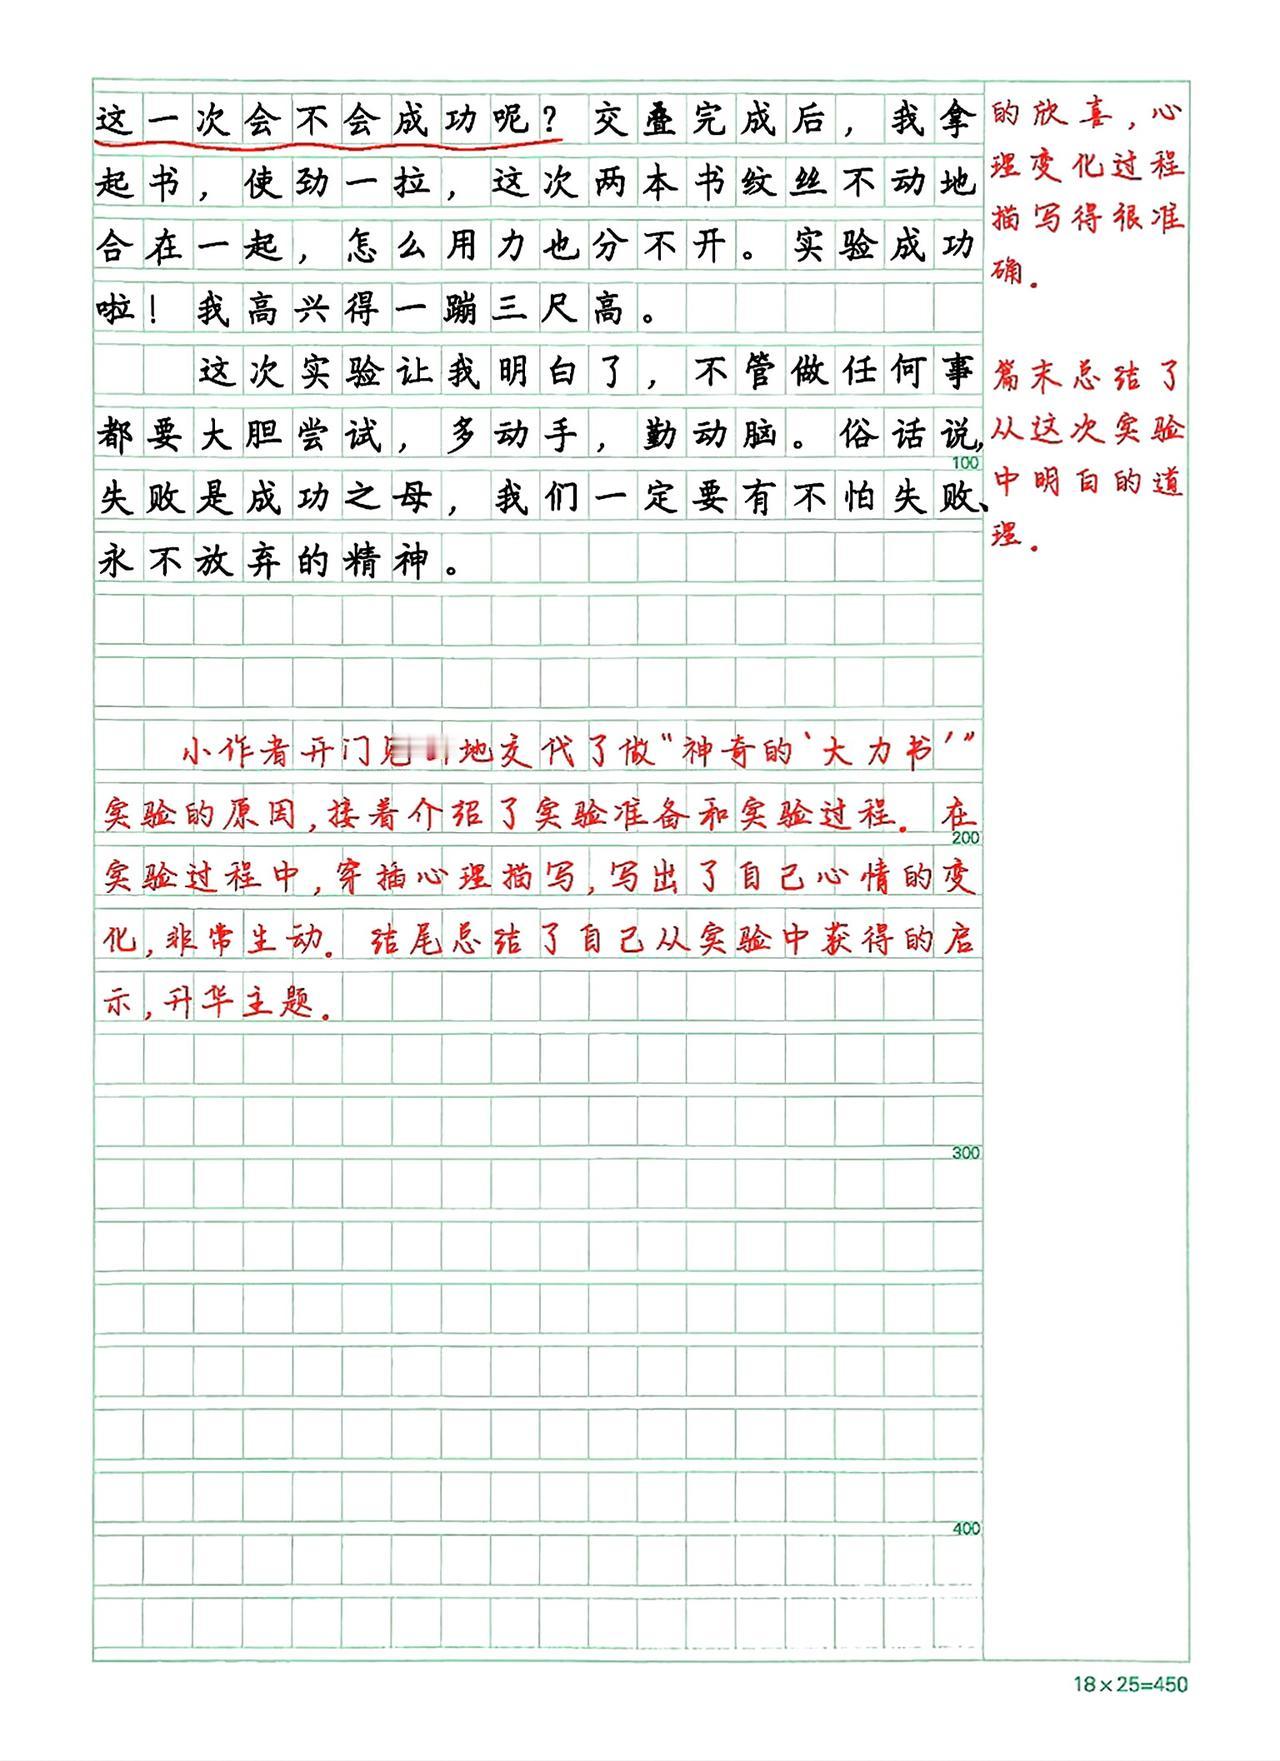 这一次会不会成功呢？交叠完成后，我拿
起书，使劲一拉，这次两本书纹丝不动地
合在一起，怎么用力也分不开。实验成功
啦！我高兴得一蹦三尺高。
这次实验让我明白了，不管做任何事
都要大胆尝试，多动手，勤动脑。俗话说，
100
失败是成功之母，我们一定要有不怕失败、
永不放弃的精神。
的欣喜，心
理变化过程
描写得很准
确。
篇末总结了
从这次实验
中明白的道
理。
小作者开门地交代了做“神奇的‘大力书’”
实验的原因，接着介绍了实验准备和实验过程。在
200
实验过程中，穿插心理描写，写出了自己心情的变
化，非常生动。结尾总结了自己从实验中获得的启
示，升华主题。
300
400
18×25=450